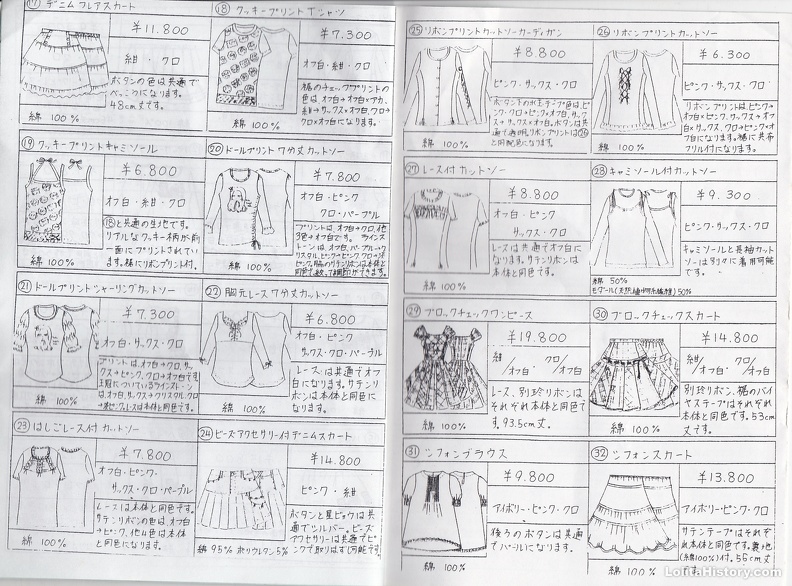 ⑰ デニムフレアスカート
¥11.800
紺・クロ
ボタンの色は共通で
ベっこうになります。
48cm丈です。
綿 100%
⑱ クッキープリントTシャツ
¥7.300
オフ白・紺・クロ
裾のチェックプリントの
色は、オフ白→オフ白×アカ、
紺→サックス×オフ白、クロ→
クロ×オフ白になります。
綿 100%
⑲ クッキープリントキャミソール
¥6.800
オフ白・紺・クロ
⑱と共通の生地です。
リアルなクッキー柄が前
一面にプリントされてい
ます。裾にリボンプリント付。
綿 100%
⑳ ドールプリント7分丈カットソー
¥7.800
オフ白・ピンク
クロ・パープル
プリントは、オフ白→クロ、他
3色→オフ白です。 ラインス
トーンは、オフ白、パープル→ク
リスタル、ピンク→ピンク、クロ→
ピンク。脇のサテンリボンは本体と
同色で
綿 100%
㉑ ドールプリントシャーリングカットソー
¥7.300
オフ白・ピンク
サックス・クロ
プリントは、オフ白→クロ、サッ
クス→ピンク、クロ→オフ白です。
王冠についているラインストーン
は、オフ白、サックス→クリスタル、クロ
ピンク。レースは本体と同色です。
綿 100%
㉒ 胸元レース7分丈カットソー
¥6.800
オフ白・ピンク
サックス・クロ・パープル
レースは共通でオフ
白になります。サテンリ
ボンは本体と同色に
なります。
綿 100%
㉓ はしごレース付カットソー
¥7.800
オフ白・ピンク・
サックス・クロ・パープル
レースは本体と同色です。
サテンリボンの色は、オフ白
→ピンク、他4色は本体
と同色になります。
綿 100%
㉔ ビーズアクセサリー付デニムスカート
¥14.800
ピンク・紺
ボタンと星ビックは共
通でシルバー。ビーズ
アクセサリーは共通でピ
ンクで取りはずし可能です。
綿 95% ポリウレタン 5%
㉕ リボンプリントカットソーカーディガン
¥8.800
ピンク・サックス・クロ
ピンク・クロ→ピンク×オフ白、サック
ス→サックス×オフ白。ボタンは共
通で
と同配色になります。
綿 100%
㉖ リボンプリントカットソー
¥6.300
ピンク・サックス・クロ
リボンプリントは、ピンク→
オフ白×ピンク、サックス→オフ
白×サックス、クロ→ピンク×オ
フ白になります。裾に共布
フリル付になります。
綿 100%
㉗ レース付カットソー
¥8.800
オフ白・ピンク
サックス・クロ
レースは共通でオフ白に
なります。サテンリボンは
本体と同色です。
綿 100%
㉘ キャミソール付カットソー
¥9.300
ピンク・サックス・クロ
キャミソールと長袖カット
ソーは別々に着用可能
です。
綿 50%
モダール(天然植物系繊維) 50%
㉙ ブロックチェックワンピース
¥19.800
紺/オフ白・クロ/オフ白
レース、別珍リボンは
それぞれ本体と同色で
す。93.5cm丈。
綿 100%
㉚ ブロックチェックスカート
¥14.800
紺/オフ白・クロ/オフ白
別珍リボン、裾のバイ
ヤステープはそれぞれ
本体と同色です。53cm
丈。
綿 100%
㉛ シフォンブラウス
¥9.800
アイボリー・ピンク・クロ
後ろのボタンは共通
でパールになります。
綿 100%
㉜ シフォンスカート
¥13.800
アイボリー・ピンク・クロ
サテンテープはそれぞ
れ本体と同色です。裏地
(綿100%)付。55cm丈
です。
綿 100%
LolitaHistory.com